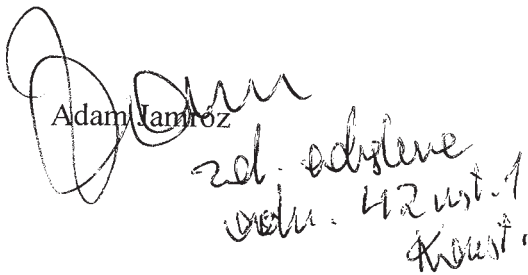 Adam Jamróz
zd. odrębne
odn. 42 ust. 1
Konst.